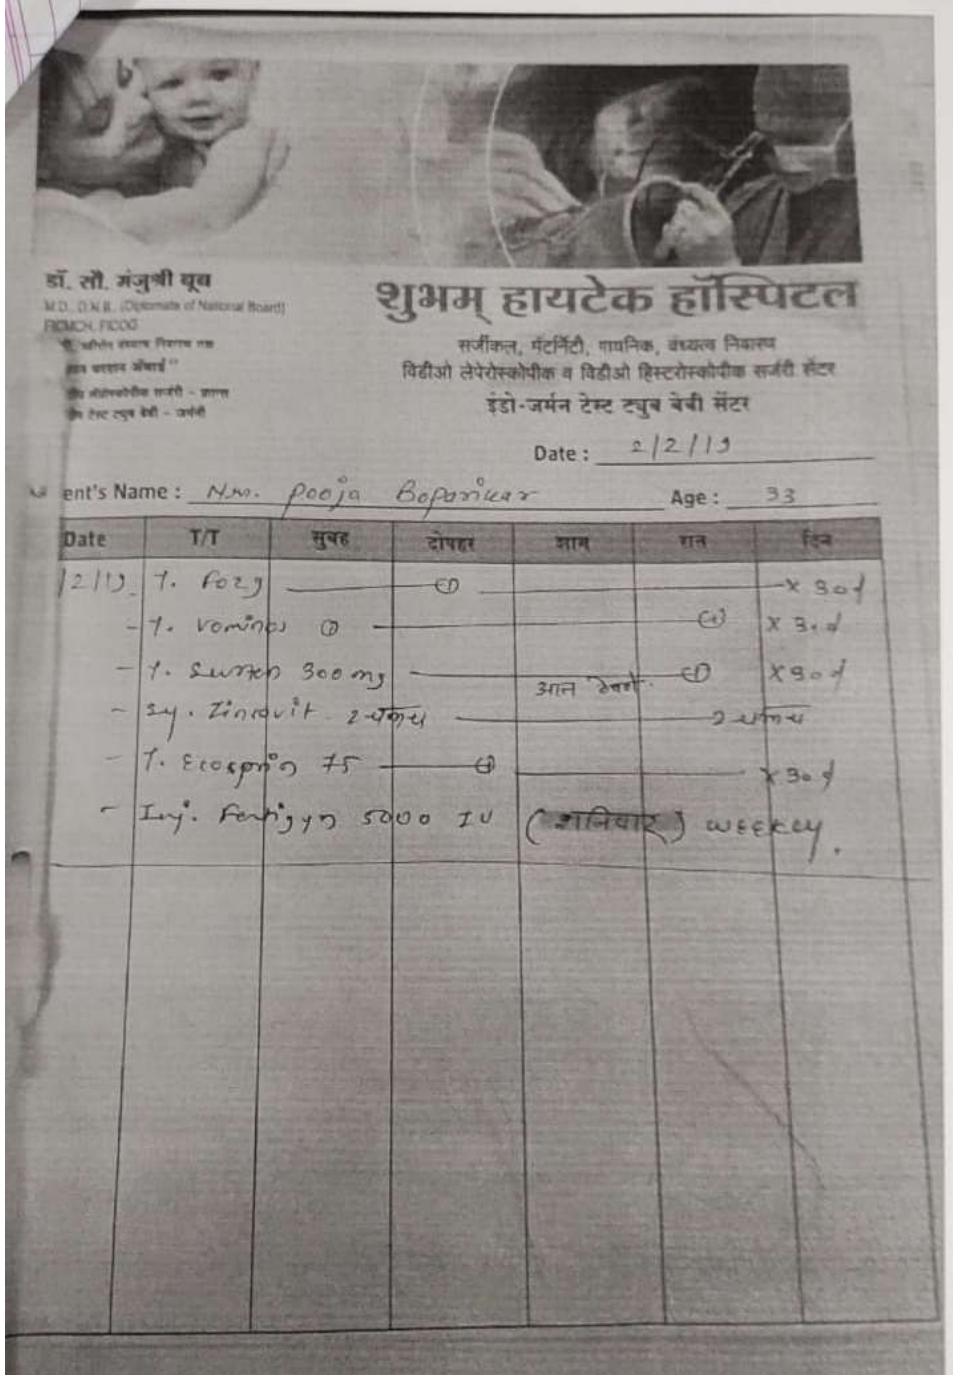 डॉ. सौ. मंजुश्री यूब
M.D., D.N.B., (Diplomate of National Board)
FICMCH, FICOG
शुभम् हायटेक हॉस्पिटल
सर्जीकल, मॅटर्निटी, गायनिक, वंध्यत्व निवारण
विडीओ लेपेरोस्कोपीक व विडीओ हिस्टरोस्कोपीक सर्जरी सेंटर
टेस्ट ट्युब बेबी - जर्मनी
इंडो-जर्मन टेस्ट ट्युब बेबी सेंटर
Date : 2/2/19
ent's Name : Mrs. Pooja Age : 33
Date T/T सुबह दोपहर शाम रात दिन
/2/19 T. ① x 30d
- T. ① ① x 30d
- T. 300 mg ① x 30d
- Sy. Zincovit 2 चमच 2 चमच
- T. Ecosprin 75 ① x 30d
- Inj. Fertigyn 5000 IU (शनिवार) WEEKLY.